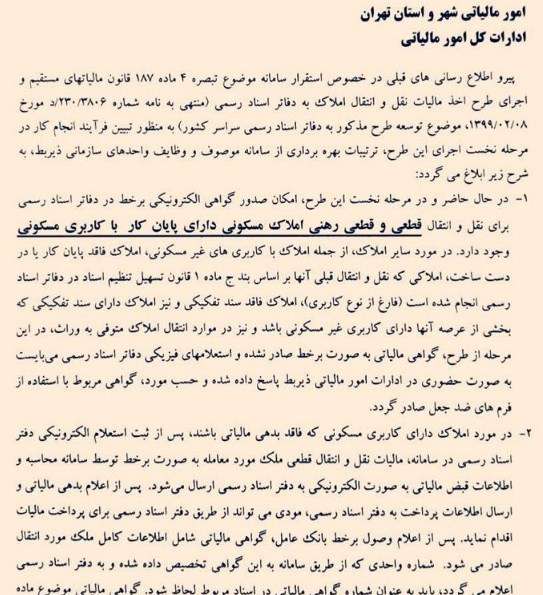 امور مالیاتی شهر و استان تهران
ادارات کل امور مالیاتی
پیرو اطلاع رسانی های قبلی در خصوص استقرار سامانه موضوع تبصره ۴ ماده ۱۸۷ قانون مالیاتهای مستقیم و
اجرای طرح اخذ مالیات نقل و انتقال املاک به دفاتر اسناد رسمی (منتهی به نامه شماره ۲۳۰/۳۸۰۶/د مورخ
۱۳۹۹/۰۲/۰۸، موضوع توسعه طرح مذکور به دفاتر اسناد رسمی سراسر کشور) به منظور تبیین فرآیند انجام کار در
مرحله نخست اجرای این طرح، ترتیبات بهره برداری از سامانه موصوف و وظایف واحدهای سازمانی ذیربط، به
شرح زیر ابلاغ می گردد:
۱- در حال حاضر و در مرحله نخست این طرح، امکان صدور گواهی الکترونیکی برخط در دفاتر اسناد رسمی
برای نقل و انتقال قطعی و قطعی رهنی املاک مسکونی دارای پایان کار با کاربری مسکونی
وجود دارد. در مورد سایر املاک، از جمله املاک با کاربری های غیر مسکونی، املاک فاقد پایان کار یا در
دست ساخت، املاکی که نقل و انتقال قبلی آنها بر اساس بند ج ماده ۱ قانون تسهیل تنظیم اسناد در دفاتر اسناد
رسمی انجام شده است (فارغ از نوع کاربری)، املاک فاقد سند تفکیکی و نیز املاک دارای سند تفکیکی که
بخشی از عرصه آنها دارای کاربری غیر مسکونی باشد و نیز در موارد انتقال املاک متوفی به وراث، در این
مرحله از طرح، گواهی مالیاتی به صورت برخط صادر نشده و استعلامهای فیزیکی دفاتر اسناد رسمی می‌بایست
به صورت حضوری در ادارات امور مالیاتی ذیربط پاسخ داده شده و حسب مورد، گواهی مربوط با استفاده از
فرم های ضد جعل صادر گردد.
۲- در مورد املاک دارای کاربری مسکونی که فاقد بدهی مالیاتی باشند، پس از ثبت استعلام الکترونیکی دفتر
اسناد رسمی در سامانه، مالیات نقل و انتقال قطعی ملک مورد معامله به صورت برخط توسط سامانه محاسبه و
اطلاعات قبض مالیاتی به صورت الکترونیکی به دفتر اسناد رسمی ارسال می‌شود. پس از اعلام بدهی مالیاتی و
ارسال اطلاعات پرداخت به دفتر اسناد رسمی، مودی می تواند از طریق دفتر اسناد رسمی برای پرداخت مالیات
اقدام نماید. پس از اعلام وصول برخط بانک عامل، گواهی مالیاتی شامل اطلاعات کامل ملک مورد انتقال
صادر می شود. شماره واحدی که از طریق سامانه به این گواهی تخصیص داده شده و به دفتر اسناد رسمی
اعلام می گردد، باید به عنوان شماره گواهی مالیاتی در اسناد مربوط لحاظ شود. گواهی مالیاتی موضوع ماده